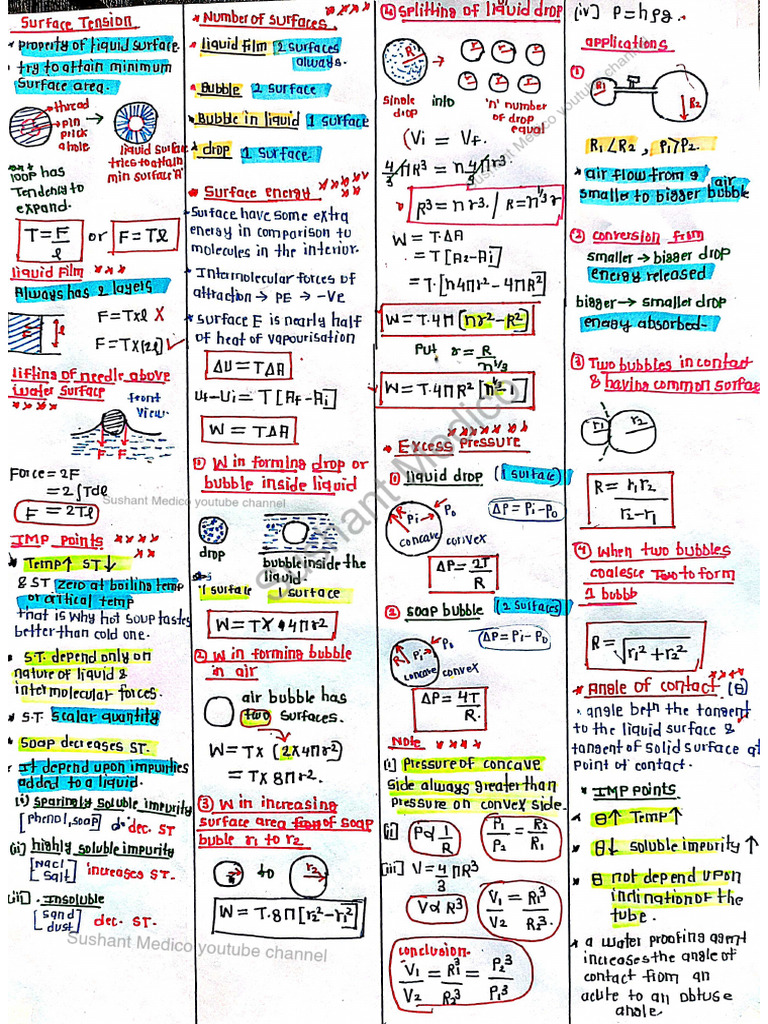 Surface Tension
* property of liquid surface.
* try to attain minimum
surface area.
thread
pin
prick
a hole
liquid surface
tries to attain
min surface 'A'
loop has
Tendency to
expand.
T = F/l or F = Tl
liquid Film ***
Always has 2 layers
F = T×l X
l
F = T×[2l] ✓
lifting of needle above
water surface
****
front
view.
F F
Force = 2F
= 2∫Tdl
F = 2Tl
Sushant Medico youtube channel
IMP Points ****
* Temp↑ ST↓
& ST zero at boiling temp
or critical temp
that is why hot soup tastes
better than cold one.
* S.T. depend only on
nature of liquid &
intermolecular forces.
* S.T. Scalar quantity
* Soap decreases ST.
* It depend upon impurities
added to a liquid.
(i) sparingly soluble impurity
[phenol, soap] dec. ST
(ii) highly soluble impurity
[Nacl
salt] increases ST.
(iii) . Insoluble
[sand
dust] dec. ST.
Sushant Medico youtube channel
****
* Number of surfaces.
* liquid film 2 surfaces
always.
* Bubble 2 surface
* Bubble in liquid 1 surface
* drop 1 surface.
* Surface energy ****
- Surface have some extra
energy in comparison to
molecules in the interior.
* Intermolecular forces of
attraction → PE → -ve
* surface E is nearly half
of heat of vapourisation
ΔU = TΔA
Uf-Ui = T[Af-Ai]
W = TΔA
① W in forming drop or
bubble inside liquid
drop
bubble inside the
liquid
1 surface 1 surface
W = T×4πr²
② W in forming bubble
in air
air bubble has
two surfaces.
W = T×(2×4πr²)
= T×8πr².
(3) W in increasing
surface area of soap
buble r1 to r2
r1 to r2
W = T·8π[r2²-r1²]
(4) splitting of liquid drop ****
R → r r r
r r r
single into 'n' number
drop of drop
equal
(Vi = Vf.
4/3 πR³ = n 4/3 πr³
R³ = n r³. / R = n^1/3 r
W = T·ΔA
= T[Af-Ai]
= T·[n4πr² - 4πR²]
W = T·4π[nr²-R²]
Put r = R/n^1/3
W = T·4πR²[n^1/3-1]
Sushant Medico
* Excess Pressure *******
① liquid drop (1 surface)
R Pi P0
ΔP = Pi-P0
concave convex
ΔP = 2T/R
② soap bubble (2 surfaces)
R Pi P0
ΔP = Pi-P0
concave convex
ΔP = 4T/R.
Note ****
(i) Pressure of concave
side always greater than
pressure on convex side.
(ii) P∝1/R P1/P2 = R2/R1
(iii) V = 4/3 πR³
V∝R³ V1/V2 = R1³/R2³.
conclusion.
V1/V2 = R1³/R2³ = P2³/P1³
Sushant Medico youtube channel
(iv) P = hρg.
applications
①
R1 R2
R1<R2 , P1>P2.
* air flow from a
smaller to bigger air bubble
② conversion from
smaller → bigger drop
energy released
bigger → smaller drop
energy absorbed-
③ Two bubbles in contact
& having common surface
r1 r2
R = r1r2/r2-r1
(4) When two bubbles
coalesce Two to form
1 bubbb
R = √r1²+r2²
* Angle of contact (θ) ****
. angle beth the tangent
to the liquid surface &
tangent of solid surface at
point of contact.
* IMP points.
* θ↑ Temp↑
* θ↓ soluble impurity ↑
* θ not depend upon
inclination of the
tube.
* a water proofing agent
increases the angle of
contact from an
acute to an obtuse
angle.